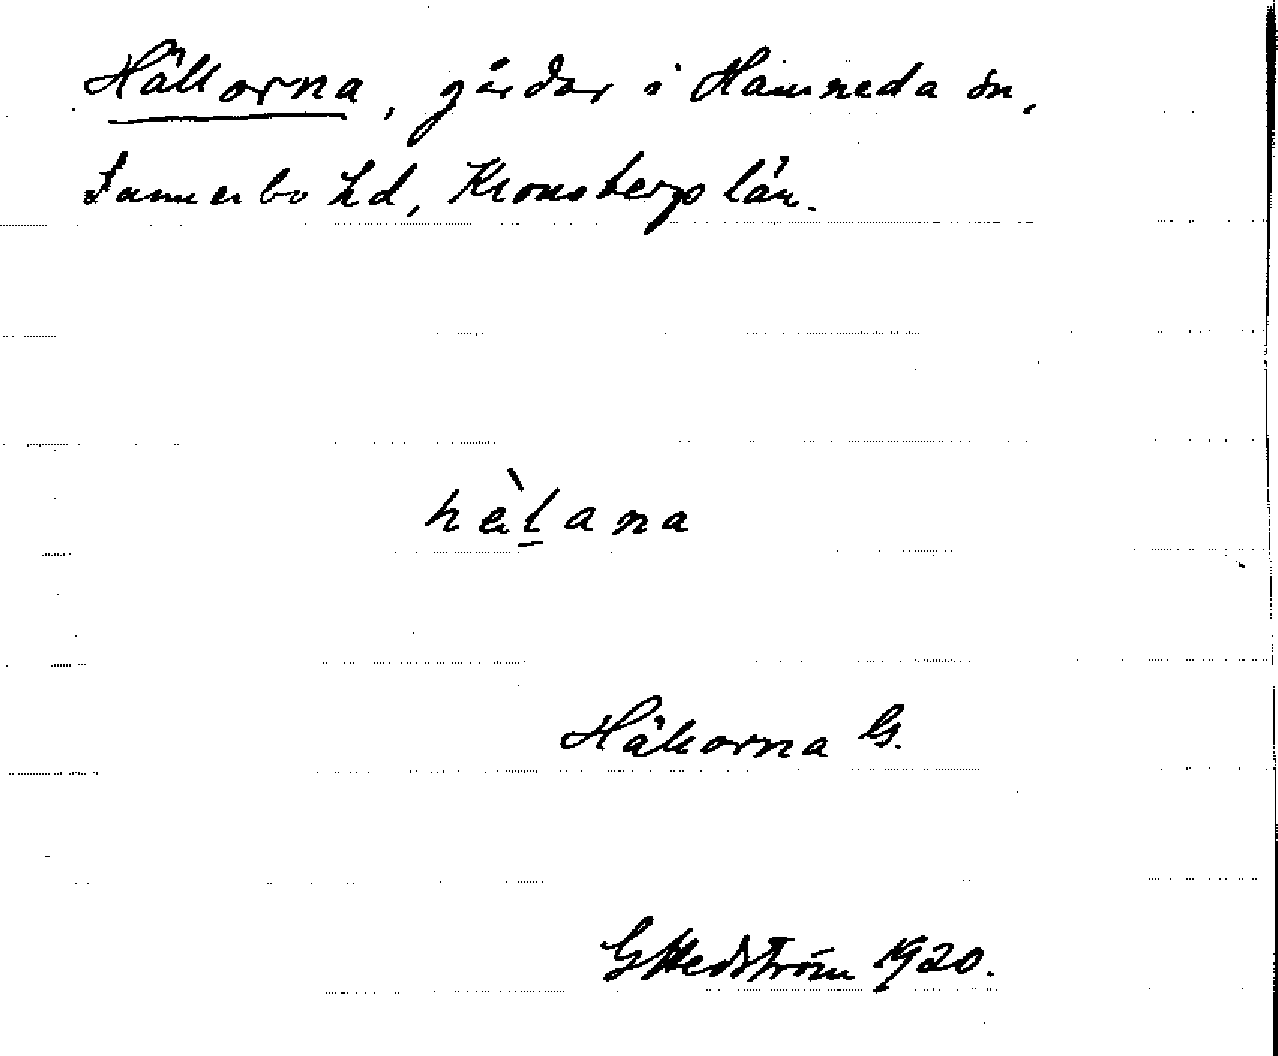 Hällorna, gårdar i Hamneda sn,
Sunnerbo hd, Kronobergs län.
hɛ̀lana
Hällorna G.
G Hedström 1920.